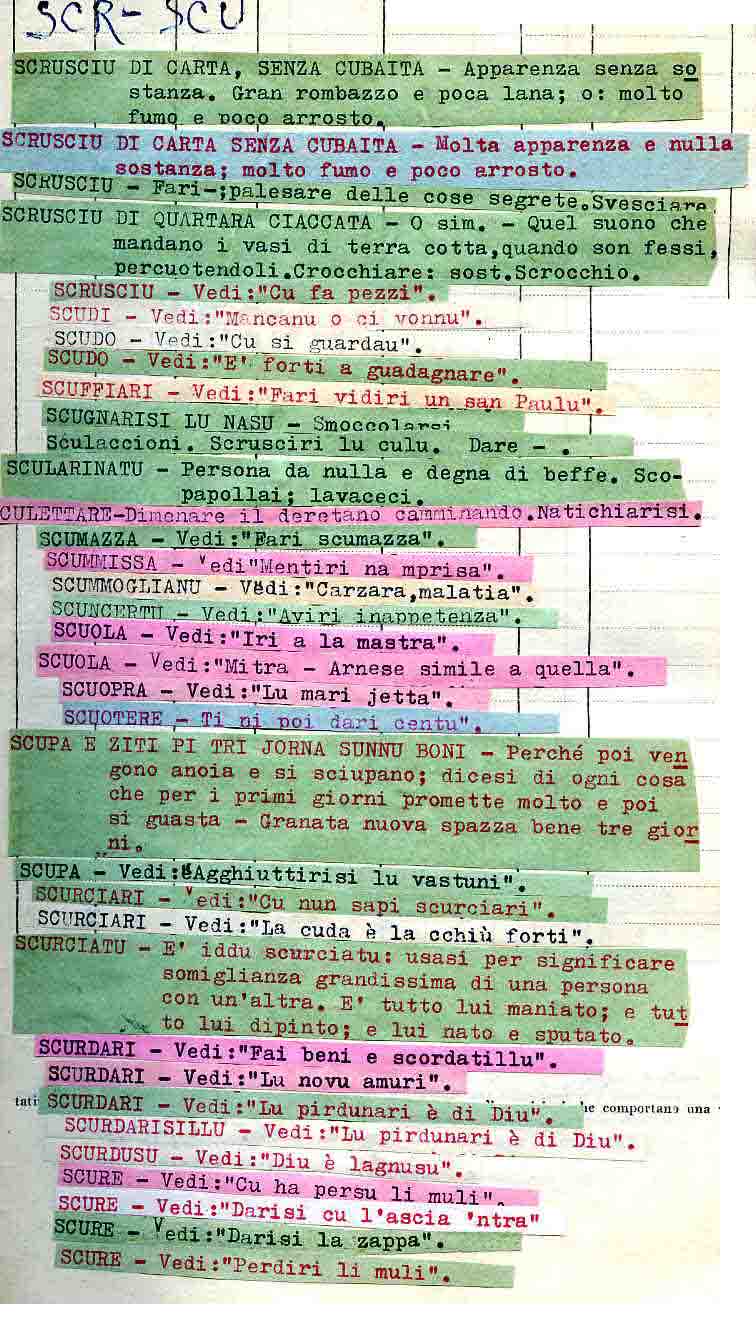 SCR- SCU
SCRUSCIU DI CARTA, SENZA CUBAITA - Apparenza senza so
stanza. Gran rombazzo e poca lana; o: molto
fumo e poco arrosto.
SCRUSCIU DI CARTA SENZA CUBAITA - Molta apparenza e nulla
sostanza; molto fumo e poco arrosto.
SCRUSCIU - Fari-;palesare delle cose segrete.Svesciare.
SCRUSCIU DI QUARTARA CIACCATA - O sim. - Quel suono che
mandano i vasi di terra cotta,quando son fessi,
percuotendoli.Crocchiare: sost.Scrocchio.
SCRUSCIU - Vedi:"Cu fa pezzi".
SCUDI - Vedi:"Mancanu o ci vonnu".
SCUDO - Vedi:"Cu si guardau".
SCUDO - Vedi:"E' forti a guadagnare".
SCUFFIARI - Vedi:"Fari vidiri un san Paulu".
SCUGNARISI LU NASU - Smoccolarsi
Sculaccioni. Scrusciri lu culu. Dare - .
SCULARINATU - Persona da nulla e degna di beffe. Sco-
papollai; lavaceci.
CULETTARE-Dimenare il deretano camminando.Natichiarisi.
SCUMAZZA - Vedi:"Fari scumazza".
SCUMMISSA - Vedi"Mentiri na mprisa".
SCUMMOGLIANU - Vedi:"Carzara,malatia".
SCUNCERTU - Vedi:"Aviri inappetenza".
SCUOLA - Vedi:"Iri a la mastra".
SCUOLA - Vedi:"Mitra - Arnese simile a quella".
SCUOPRA - Vedi:"Lu mari jetta".
SCUOTERE - Ti ni poi dari centu".
SCUPA E ZITI PI TRI JORNA SUNNU BONI - Perché poi ven
gono anoia e si sciupano; dicesi di ogni cosa
che per i primi giorni promette molto e poi
si guasta - Granata nuova spazza bene tre gior
ni.
SCUPA - Vedi:"Agghiuttirisi lu vastuni".
SCURCIARI - Vedi:"Cu nun sapi scurciari".
SCURCIARI - Vedi:"La cuda è la cchiù forti".
SCURCIATU - E' iddu scurciatu: usasi per significare
somiglianza grandissima di una persona
con un'altra. E' tutto lui maniato; e tut
to lui dipinto; e lui nato e sputato.
SCURDARI - Vedi:"Fai beni e scordatillu".
SCURDARI - Vedi:"Lu novu amuri".
SCURDARI - Vedi:"Lu pirdunari è di Diu".
comportano una
SCURDARISILLU - Vedi:"Lu pirdunari è di Diu".
SCURDUSU - Vedi:"Diu è lagnusu".
SCURE - Vedi:"Cu ha persu li muli".
SCURE - Vedi:"Darisi cu l'ascia 'ntra"
SCURE - Vedi:"Darisi la zappa".
SCURE - Vedi:"Perdiri li muli".